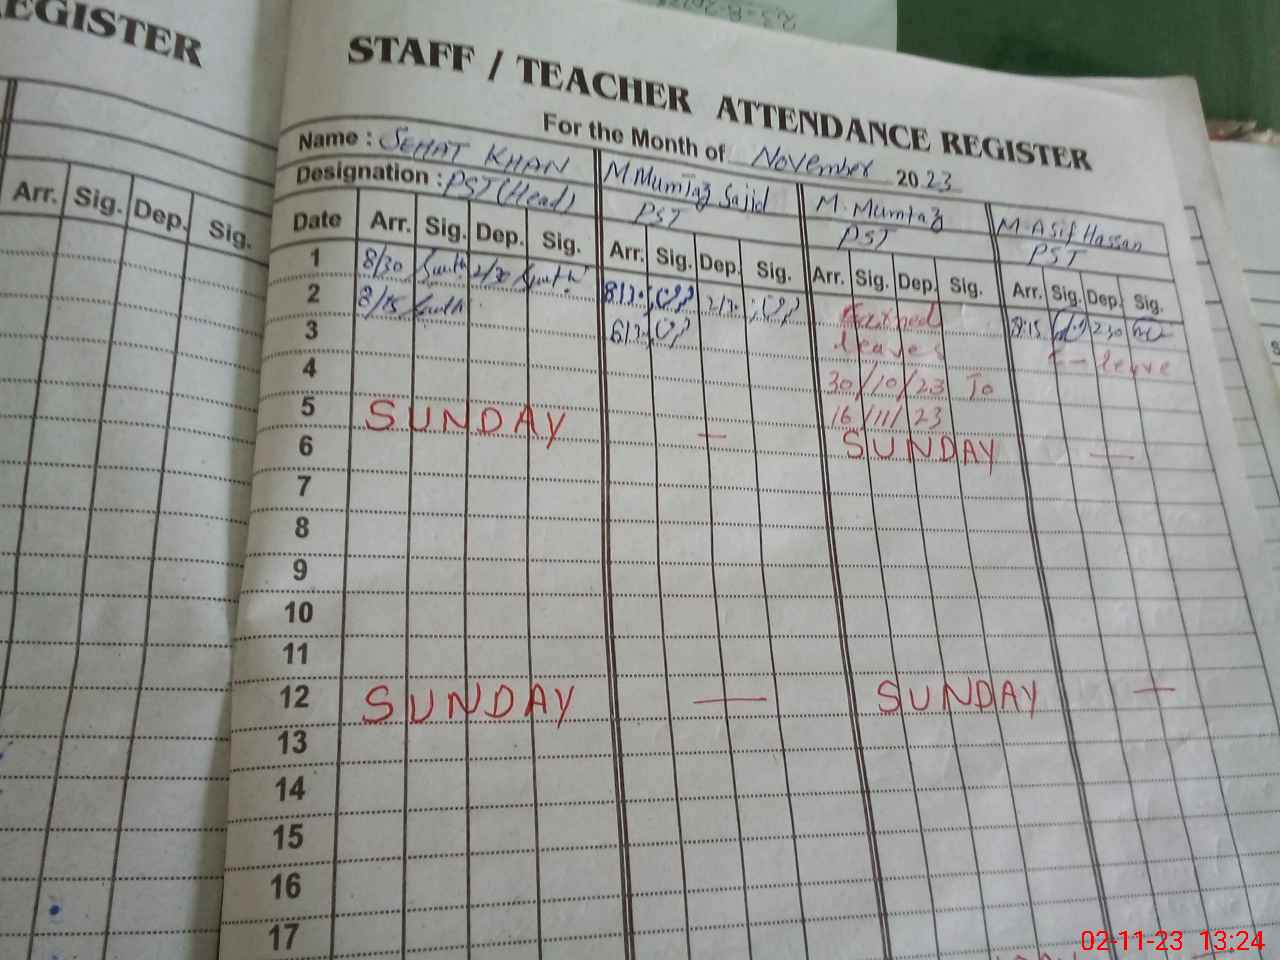 REGISTER
STAFF / TEACHER ATTENDANCE REGISTER
For the Month of November 2023
Name : SEHAT KHAN M Mumtaz Sajid M. Mumtaz M. Asif Hassan
Designation : PST (Head) PST PST PST
Arr. Sig. Dep. Sig.
Date Arr. Sig. Dep. Sig. Arr. Sig. Dep. Sig. Arr. Sig. Dep. Sig. Arr. Sig. Dep. Sig.
1 8/30 2/30 Earned 8:15 2:30
2 8/15 leaves C-leave
3 30/10/23 To
4 16/11/23
5 SUNDAY — SUNDAY —
6
7
8
9
10
11
12 SUNDAY — SUNDAY —
13
14
15
16
17
02-11-23 13:24